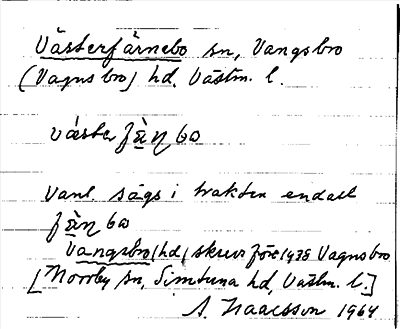 Västerfärnebo sn, Vangsbro
(Vagnsbro) hd, Västm. l.
väster fä̀ṇ bo
Vanl. sägs i trakten endast
fä̀ṇ bo
Vangsbro (hd) skrevs före 1938 Vagnsbro
[Morrby sn, Simtuna hd, Västm. l.]
A. Isaacsson 1964